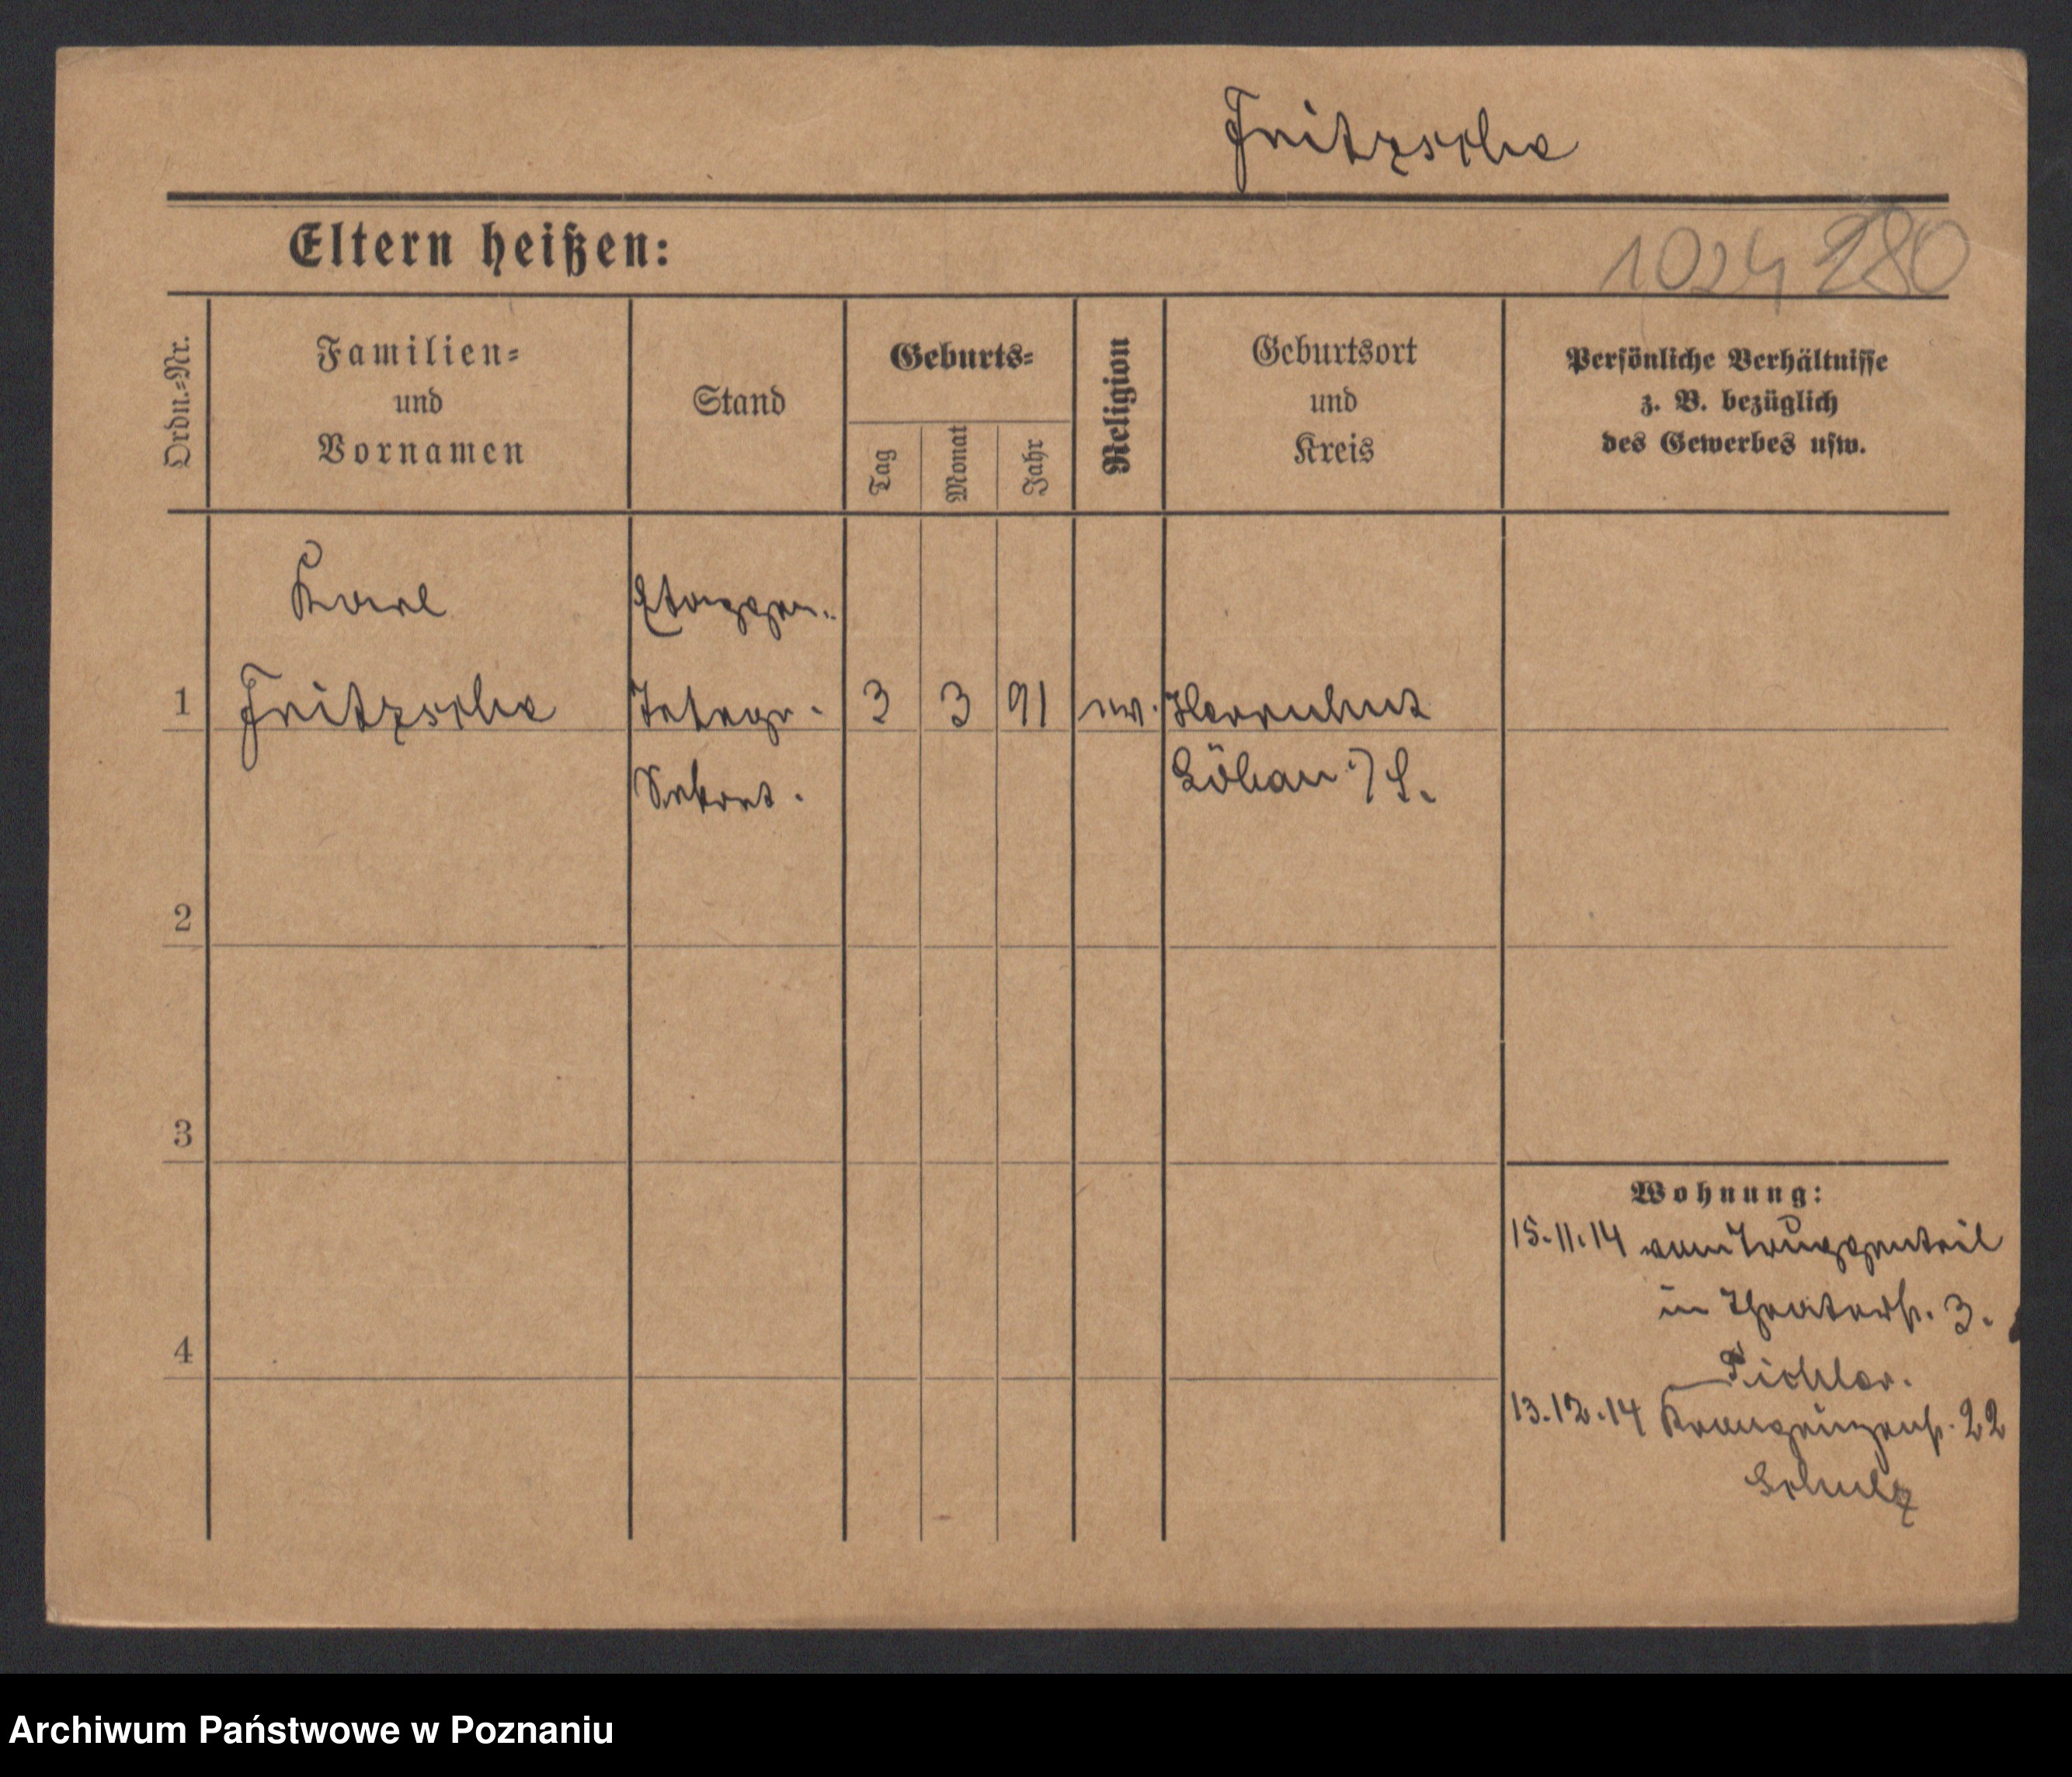 Fritzsche
Eltern heißen:
1024 280
Ordn.-Nr.
Familien-
und
Vornamen
Stand
Geburts-
Tag
Monat
Jahr
Religion
Geburtsort
und
Kreis
Persönliche Verhältnisse
z. B. bezüglich
des Gewerbes usw.
Karl
Etappen-
1
Fritzsche
Telegr.
3
3
91
ev.
Herrnhut
Sekret.
Löbau i/S.
2
3
4
Wohnung:
15.11.14 vom Truppenteil
in Theaterstr. 3.
Pichler.
13.12.14 Kronprinzenstr. 22
Schulz
Archiwum Państwowe w Poznaniu